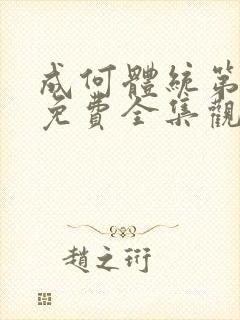 成何體統第
免費全集觀
趙之珩